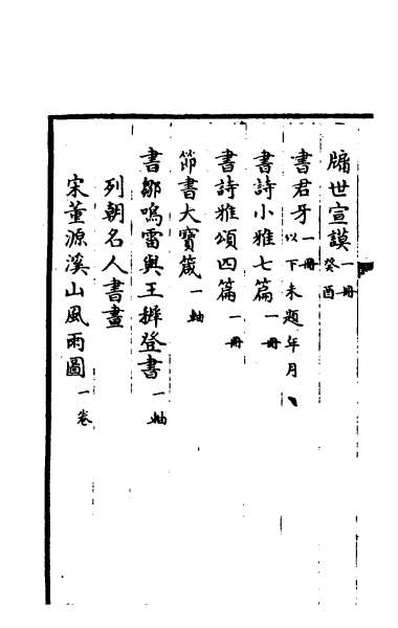 牖世宣謨一冊癸酉
書君牙一冊以下未題年月
書詩小雅七篇一冊
書詩雅頌四篇一冊
節書大寶箴一軸
書鄒鳴雷與王樨登書一軸
列朝名人書畫
宋董源溪山風雨圖一卷